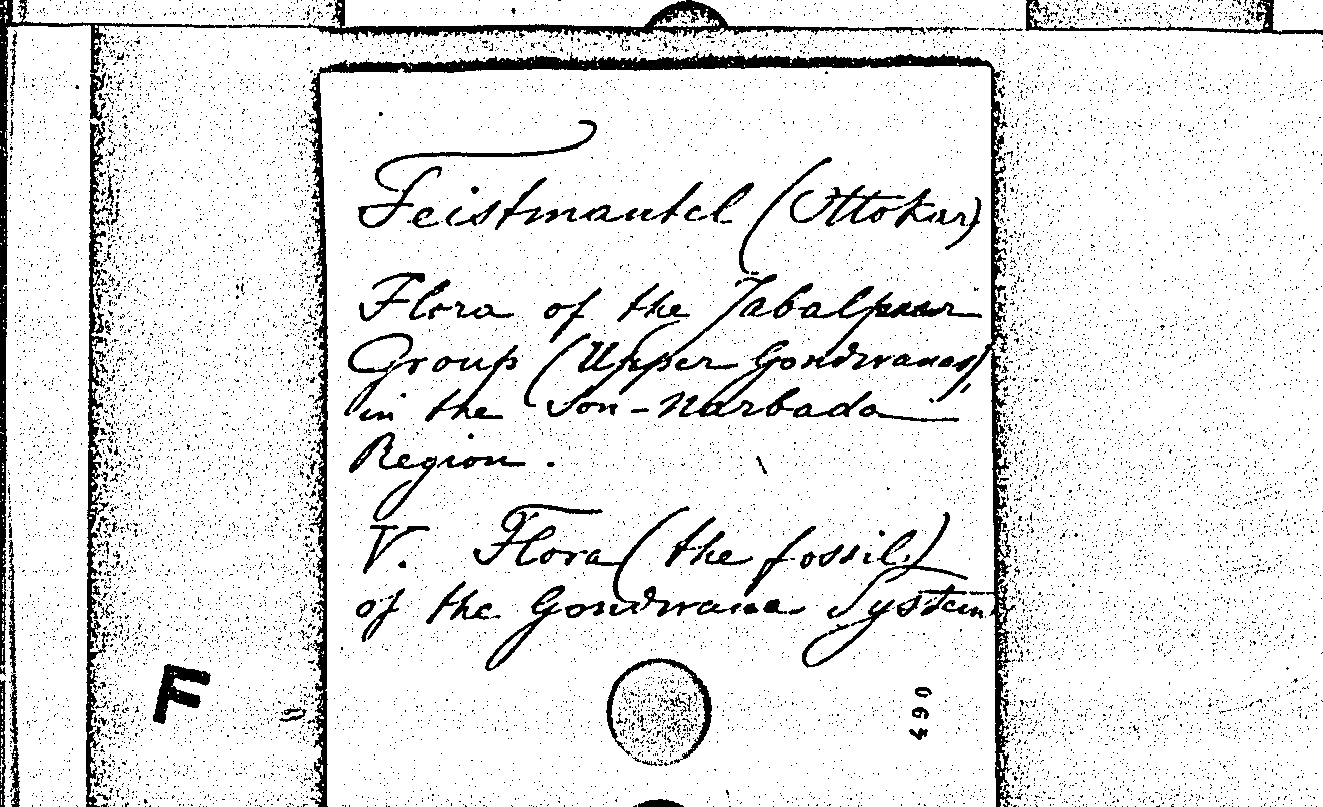 Feistmantel (Ottokar)
Flora of the Jabalpur
Group (Upper Gondwanas)
in the Son-Narbada
Region.
V. Flora (the fossil)
of the Gondwana System
F
490